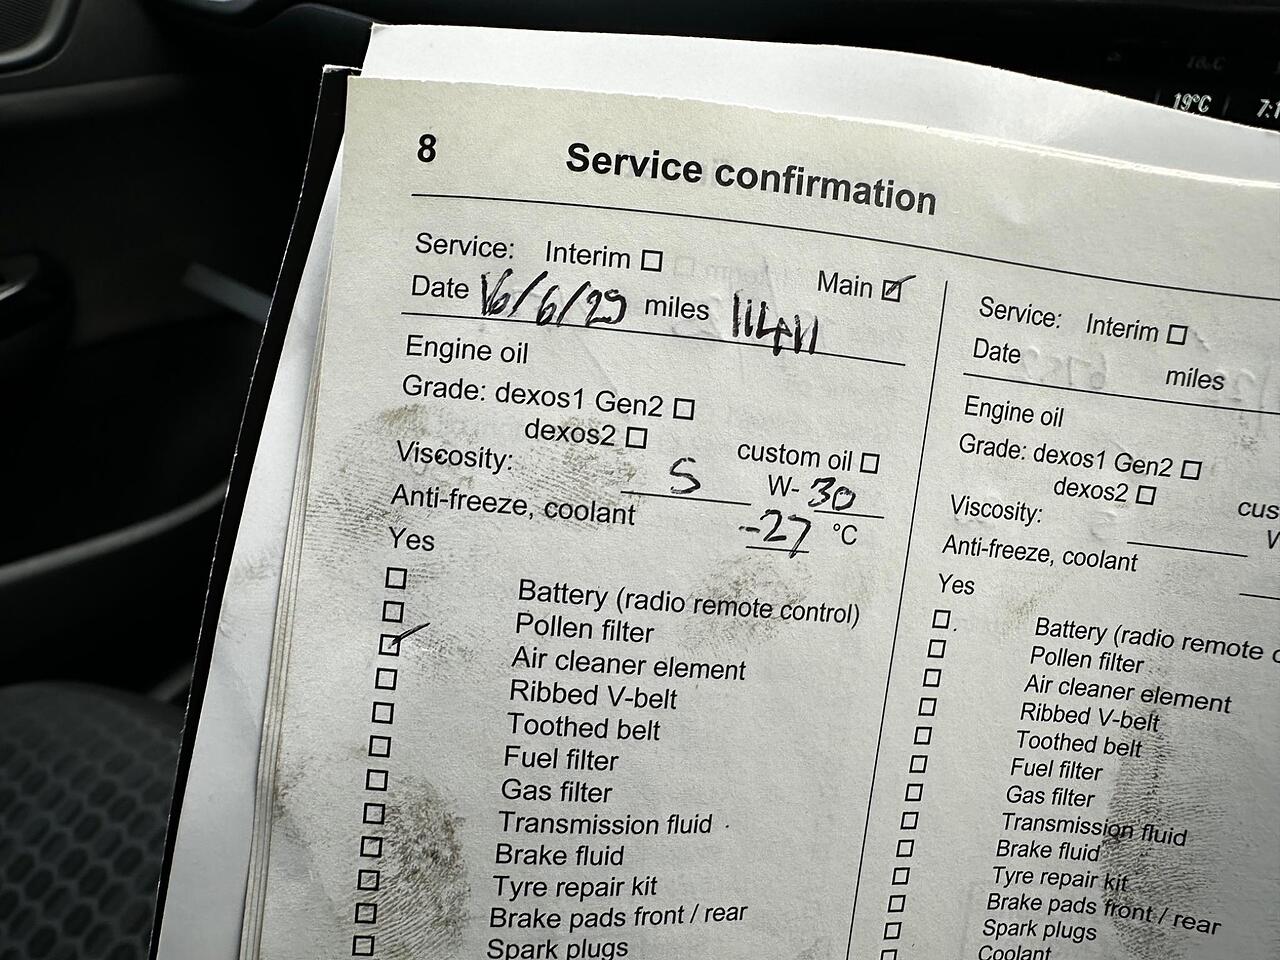 19°C
8
Service confirmation
Service: Interim Main
Date 16/6/29 miles 111411
Engine oil
Grade: dexos1 Gen2
dexos2 custom oil
Viscosity: 5 W-30
Anti-freeze, coolant -27 °C
Yes
Battery (radio remote control)
Pollen filter
Air cleaner element
Ribbed V-belt
Toothed belt
Fuel filter
Gas filter
Transmission fluid
Brake fluid
Tyre repair kit
Brake pads front / rear
Spark plugs
Service: Interim
Date miles
Engine oil
Grade: dexos1 Gen2
dexos2
Viscosity:
Anti-freeze, coolant
Yes
Battery (radio remote
Pollen filter
Air cleaner element
Ribbed V-belt
Toothed belt
Fuel filter
Gas filter
Transmission fluid
Brake fluid
Tyre repair kit
Brake pads front / rear
Spark plugs
Coolant